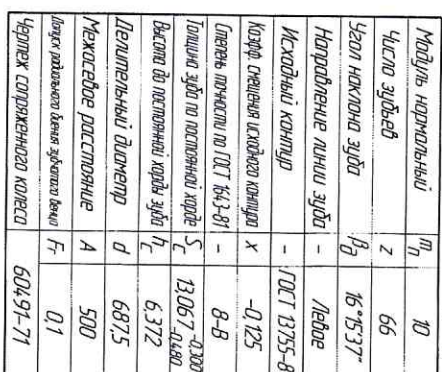 Модуль нормальный mn 10
Число зубьев z 66
Угол наклона зуба βд 16°15'37"
Направление линии зуба - Левое
Исходный контур - ГОСТ 13755-8
Коэфф. смещения исходного контура x -0,125
Степень точности по ГОСТ 1643-81 - 8-B
Толщина зуба по постоянной хорде Sc 13,067 -0,300 -0,480
Высота до постоянной хорды зуба hc 6,372
Делительный диаметр d 687,5
Межосевое расстояние A 500
Допуск радиального биения зубчатого венца Fr 0,1
Чертеж сопряженного колеса 60491-71